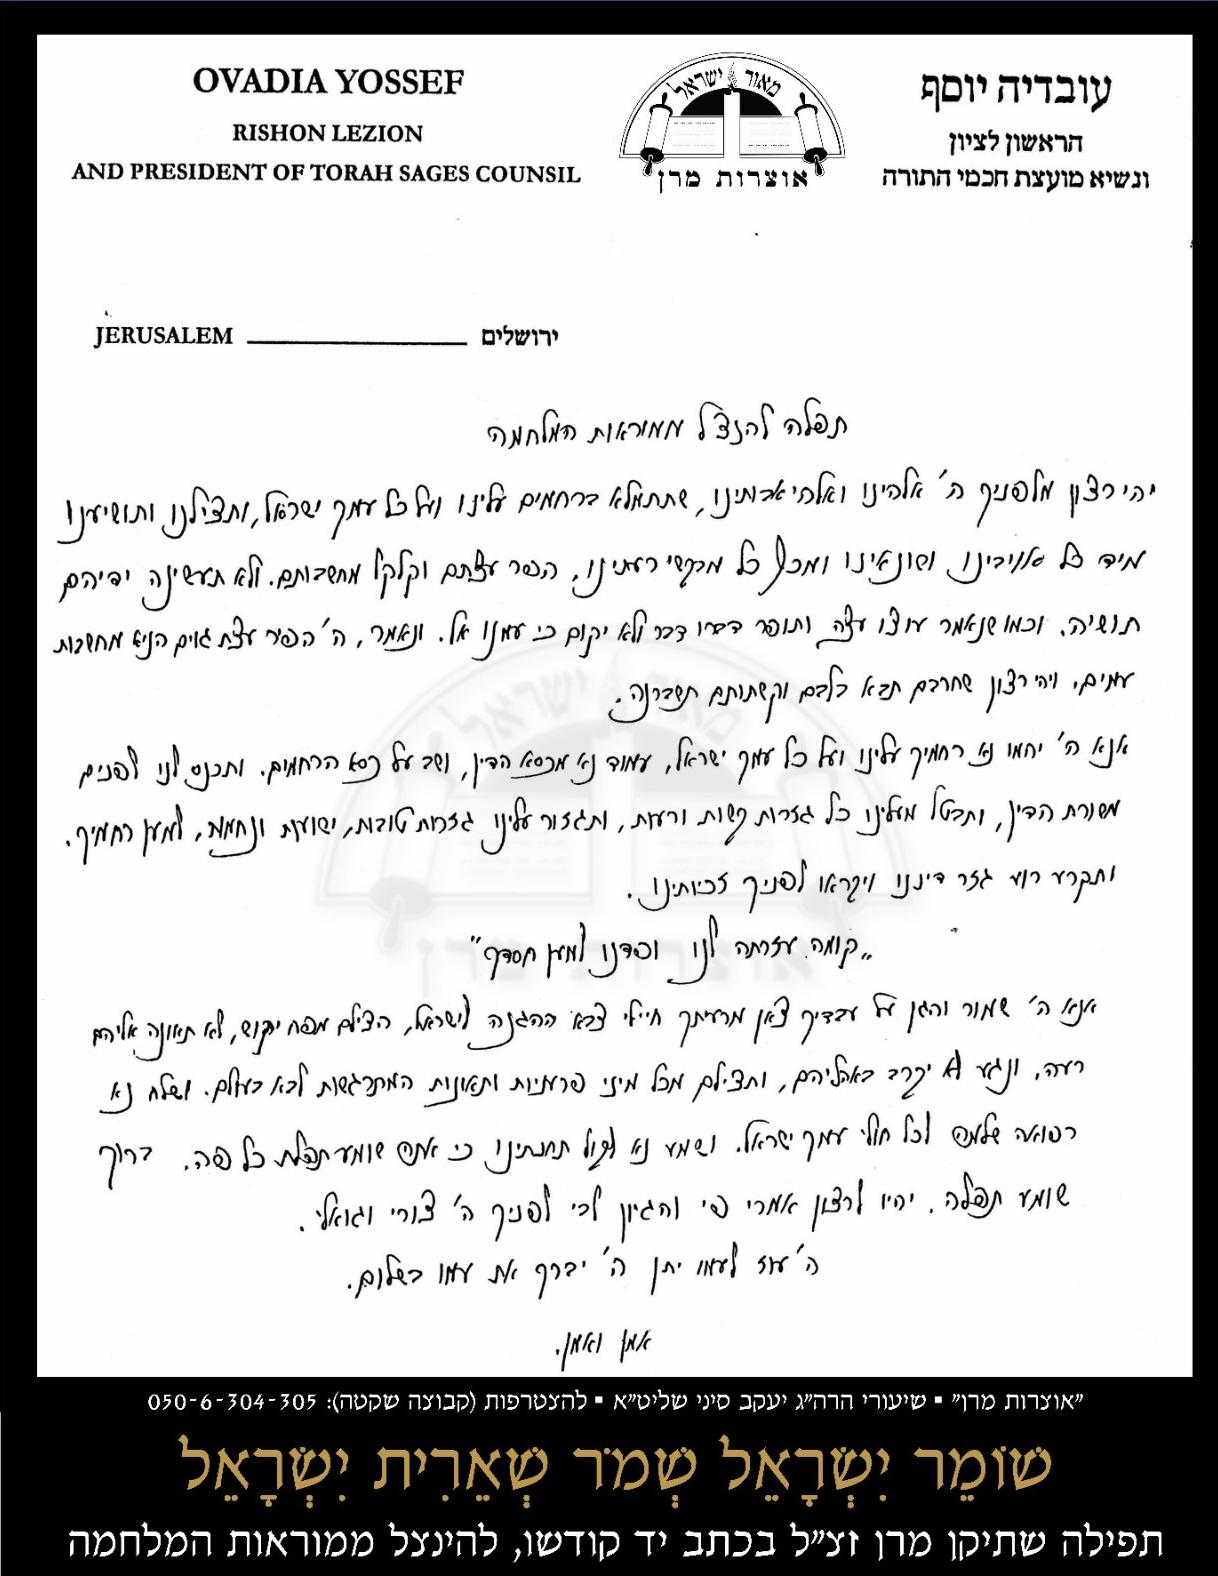 OVADIA YOSSEF
RISHON LEZION
AND PRESIDENT OF TORAH SAGES COUNSIL
מאור ישראל
אוצרות מרן
עובדיה יוסף
הראשון לציון
ונשיא מועצת חכמי התורה
JERUSALEM ירושלים
תפלה להנצל ממוראות המלחמה
יהי רצון מלפניך ה' אלהינו ואלהי אבותינו, שתתמלא ברחמים עלינו ועל כל עמך ישראל, ותצילנו ותושיענו
מיד כל אויבינו ושונאינו ומכל כל מבקשי רעתינו, הפר עצתם וקלקל מחשבותם. ולא תעשינה ידיהם
תושיה. וכמו שנאמר עוצו עצה ותופר דברו דבר ולא יקום כי עמנו אל. ונאמר, ה' הפיר עצת גוים הניא מחשבות
עמים. ויהי רצון שחרבם תבא בלבם וקשתותם תשברנה.
אנא ה' יהמו נא רחמיך עלינו ועל כל עמך ישראל, עמוד נא מכסא הדין, ושב על כסא הרחמים. ותכנס לנו לפנים
משורת הדין, ותבטל מעלינו כל גזרות קשות ורעות, ותגזור עלינו גזרות טובות, ישועות ונחמות, למען רחמיך.
ותקרע רוע גזר דיננו ויקראו לפניך זכיותינו.
"קומה עזרתה לנו ופדנו למען חסדך"
אנא ה' שמור והגן על עבדיך צאן מרעיתך חיילי צבא ההגנה לישראל, הצילם מפח יקוש, לא תאונה אליהם
רעה, ונגע לא יקרב באהליהם, ותצילם מכל מיני פרעניות ותאונות המתרגשות לבא בעולם. ושלח נא
רפואה שלמה לכל חולי עמך ישראל. ושמע נא לקול תחנתינו כי אתה שומע תפלת כל פה. ברוך
שומע תפלה. יהיו לרצון אמרי פי והגיון לבי לפניך ה' צורי וגואלי.
ה' עוז לעמו יתן ה' יברך את עמו בשלום.
אמן ואמן.
"אוצרות מרן" ▪ שיעורי הרה"ג יעקב סיני שליט"א ▪ להצטרפות (קבוצה שקטה): 050-6-304-305
שׁוֹמֵר יִשְׂרָאֵל שְׁמֹר שְׁאֵרִית יִשְׂרָאֵל
תפילה שתיקן מרן זצ"ל בכתב יד קודשו, להינצל ממוראות המלחמה